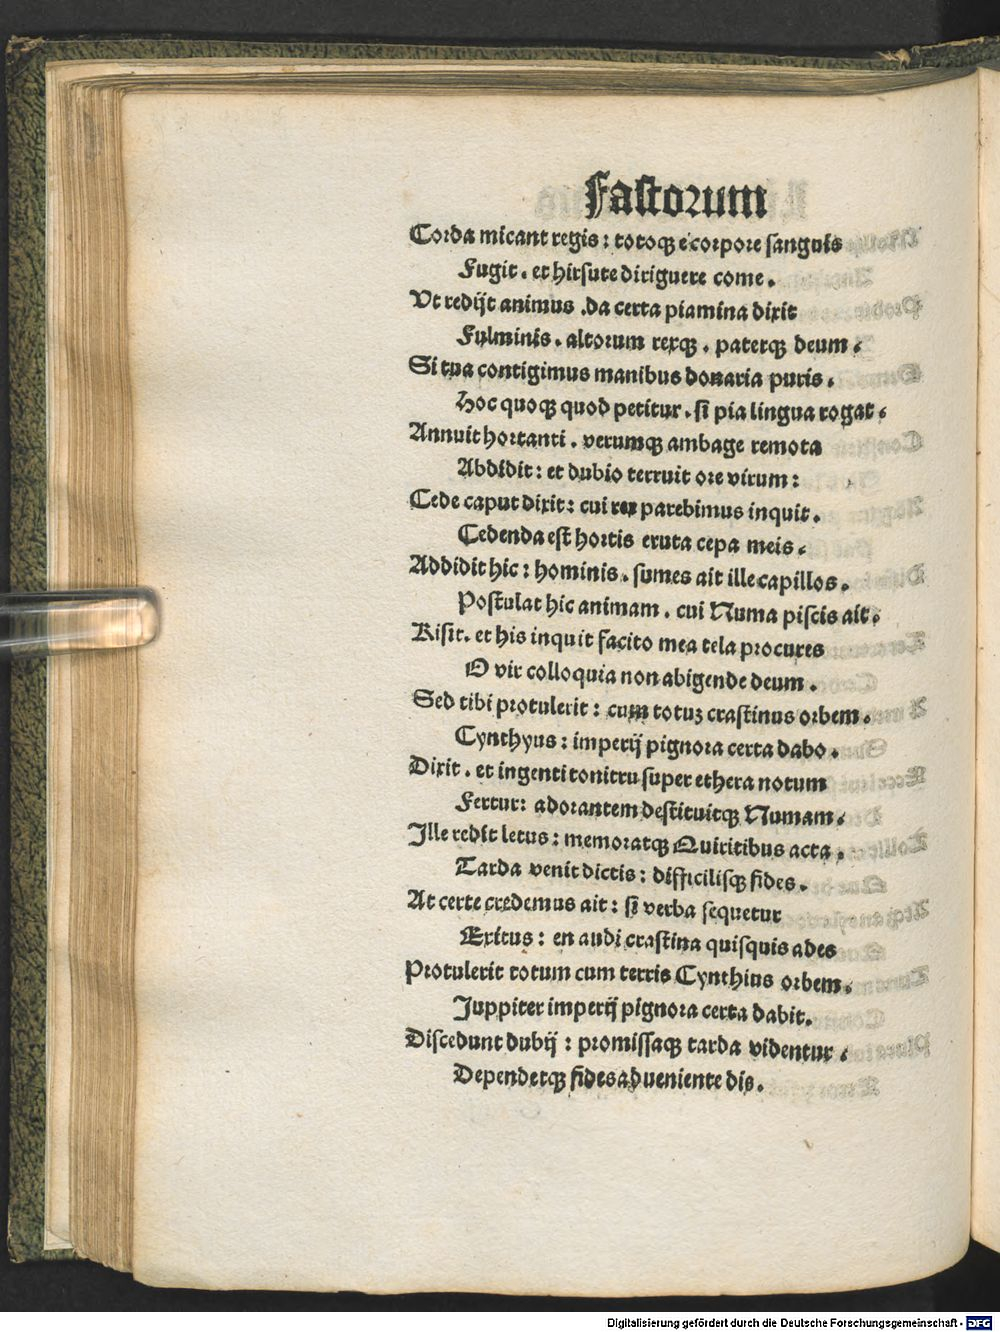 Fastorum
Corda micant regis: totoqꝫ e corpore sanguis
Fugit. et hirsute diriguere come.
Ut redijt animus .da certa piamina dixit
Fulminis. altorum rexqꝫ. paterqꝫ deum.
Si tua contigimus manibus donaria puris.
Hoc quoqꝫ quod petitur. si pia lingua rogat.
Annuit hortanti. verumqꝫ ambage remota
Abdidit: et dubio terruit ore virum:
Cede caput dixit: cui rex parebimus inquit.
Cedenda est hortis eruta cepa meis.
Addidit hic: hominis. sumes ait ille capillos.
Postulat hic animam. cui Numa piscis ait.
Risit. et his inquit facito mea tela procures
O vir colloquia non abigende deum.
Sed tibi protulerit: cum totuz crastinus orbem.
Cynthyus: imperij pignora certa dabo.
Dixit. et ingenti tonitru super ethera notum
Fertur: adorantem destituitqꝫ Numam.
Ille redit letus: memoratqꝫ Quiritibus acta.
Tarda venit dictis: difficilisqꝫ fides.
At certe credemus ait: si verba sequetur
Exitus: en audi crastina quisquis ades
Protulerit totum cum terris Cynthius orbem.
Juppiter imperij pignora certa dabit.
Discedunt dubij: promissaqꝫ tarda videntur.
Dependetqꝫ fides adueniente die.
Digitalisierung gefördert durch die Deutsche Forschungsgemeinschaft - DFG